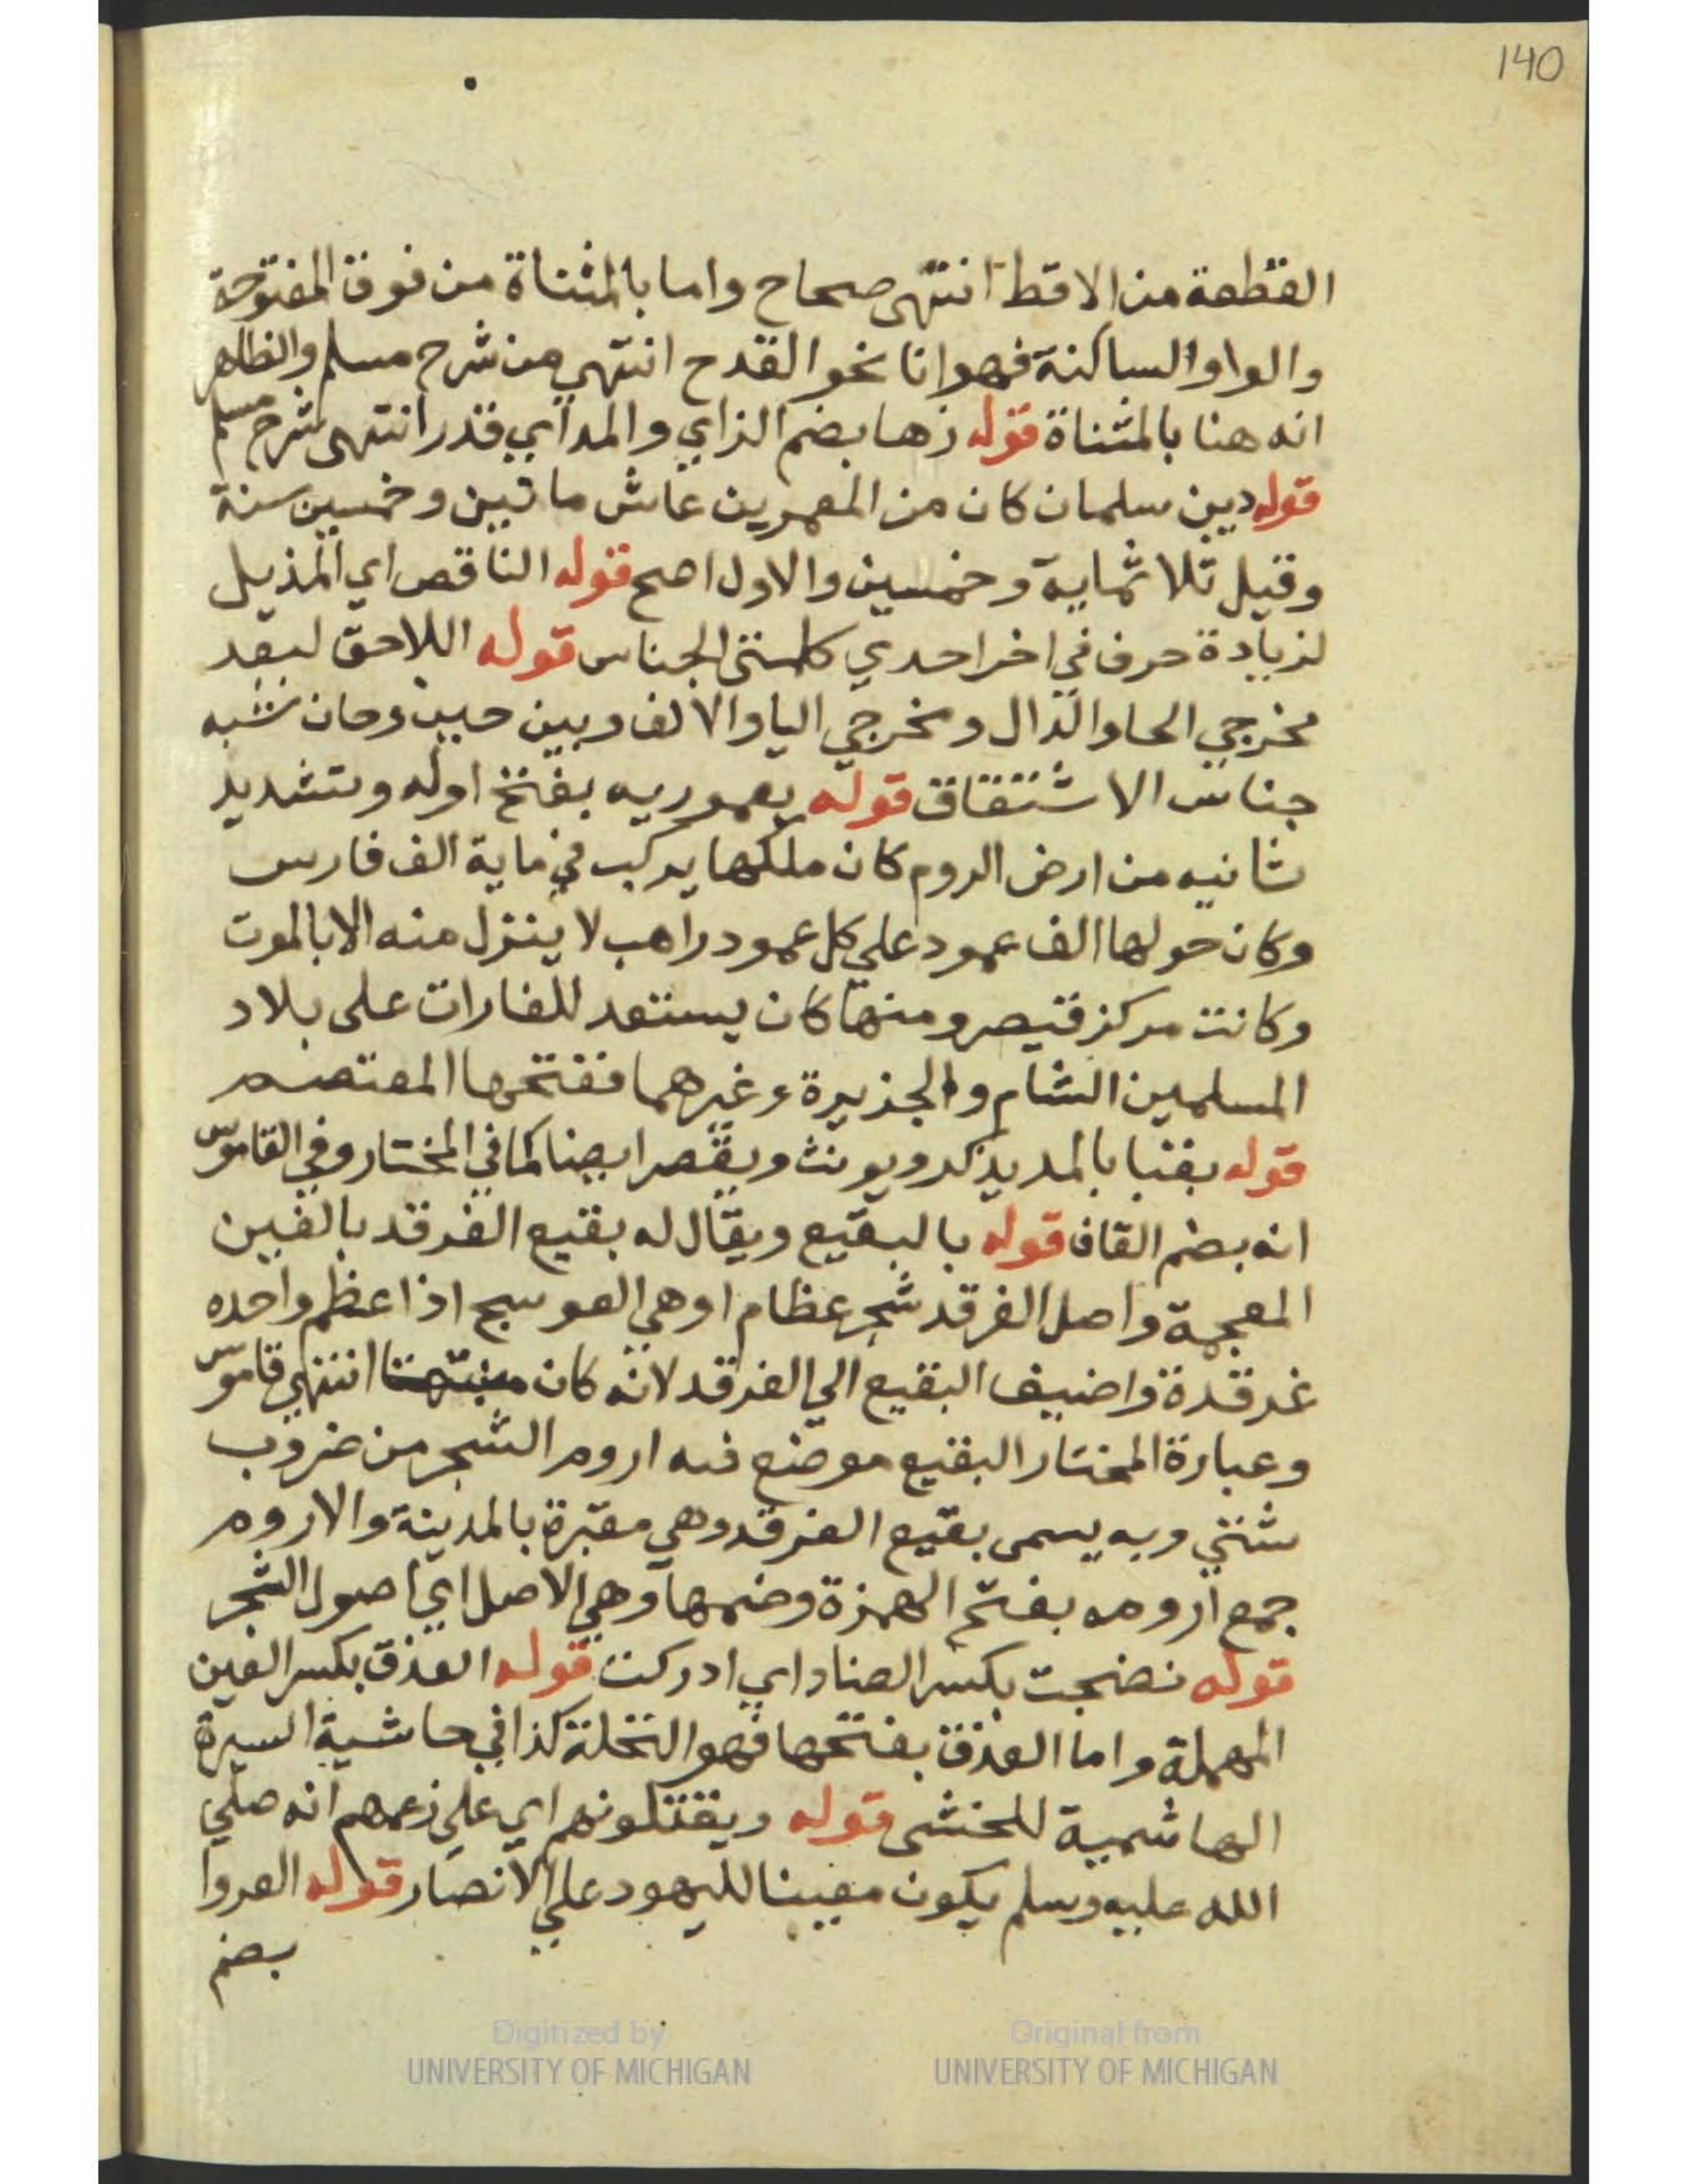 140
القطعة من الاقط انتهى صحاح واما بالمثناة من فوق المفتوحة
والواو الساكنة فهو انا نحو القدح انتهي من شرح مسلم والظاهر
انه هنا بالمثناة قوله زها بضم الزاي والمد اي قدر انتهى شرح مسلم
قوله دين سلمان كان من المعمرين عاش ماتين وخمسين سنة
وقيل ثلاثماية وخمسين والاول اصح قوله الناقص اي المذيل
لزيادة حرف في اخر احدي كلمتي الجناس قوله اللاحق لبعد
مخرجي الحا والدال ومخرجي اليا والالف وبين حين وحان شبه
جناس الاشتقاق قوله بعموريه بفتح اوله وتشديد
ثانيه من ارض الروم كان ملكها يركب في ماية الف فارس
وكان حولها الف عمود علي كل عمود راهب لا ينزل منه الا بالموت
وكانت مركز قيصر ومنها كان يستعد للغارات على بلاد
المسلمين الشام والجزيرة وغيرهما ففتحها المعتصم
قوله بقبا بالمد يذكر ويونث ويقصر ايضا كما في المختار وفي القاموس
انه بضم القاف قوله بالبقيع ويقال له بقيع الغرقد بالغين
المعجمة واصل الغرقد شجر عظام او هي العوسج اذا عظم واحده
غرقدة واضيف البقيع الي الغرقد لانه كان منبتها انتهي قاموس
وعبارة المختار البقيع موضع فيه اروم الشجر من ضروب
شتي وبه يسمى بقيع الغرقد وهي مقبرة بالمدينة والاروم
جمع ارومه بفتح الهمزة وضمها وهي الاصل اي اصول الشجر
قوله نضجت بكسر الضاد اي ادركت قوله العذق بكسر العين
المهملة واما العذق بفتحها فهو النخلة كذا في حاشية السيرة
الهاشمية للخشى قوله ويقتلونهم اي علي زعمهم انه صلي
الله عليه وسلم يكون معينا لليهود علي الانصار قوله العروا
بضم
Digitized by
UNIVERSITY OF MICHIGAN
Original from
UNIVERSITY OF MICHIGAN